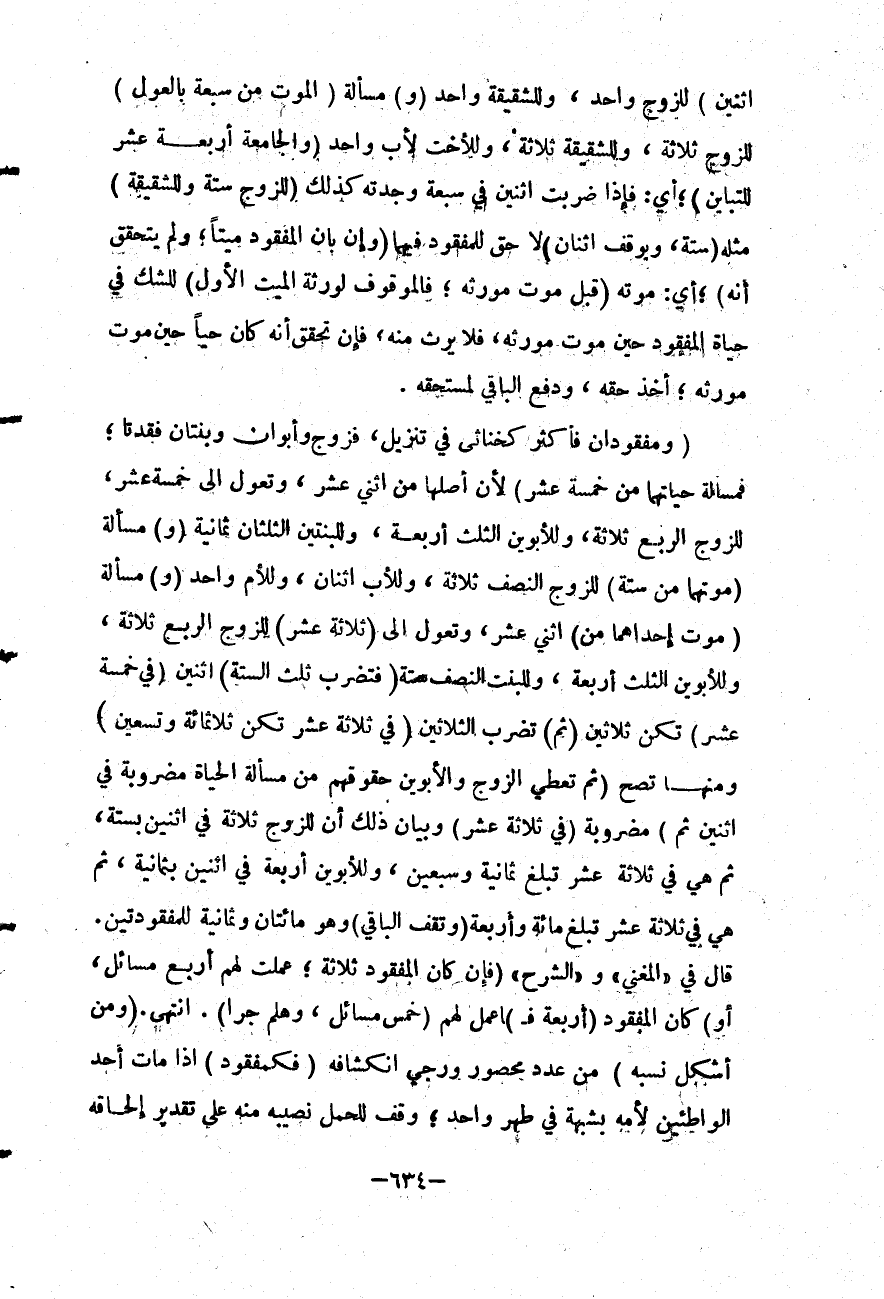 اثنين ) للزوج واحد ، وللشقيقة واحد (و) مسألة ( الموت من سبعة بالعول )
للزوج ثلاثة ، وللشقيقة ثلاثة ، وللأخت لأب واحد (والجامعة أربعــة عشر
للتباين ) ؛ أي : فإذا ضربت اثنين في سبعة وجدته كذلك (للزوج ستة وللشقيقة )
مثله (ستة ، ويوقف اثنان) لا حق للمفقود فيها (وإن بان المفقود ميتاً ؛ ولم يتحقق
أنه) ؛ أي : موته (قبل موت مورثه ؛ فالموقوف لورثة الميت الأول) للشك في
حياة المفقود حين موت مورثه ، فلا يرث منه ، فإن تحقق أنه كان حياً حين موت
مورثه ؛ أخذ حقه ، ودفع الباقي لمستحقه .
( ومفقودان فأكثر كخناثى في تنزيل ، فزوج وأبوان وبنتان فقدتا ؛
فمسألة حياتهما من خمسة عشر) لأن أصلها من اثني عشر ، وتعول الى خمسة عشر ،
للزوج الربع ثلاثة ، وللأبوين الثلث أربعــة ، وللبنتين الثلثان ثمانية (و) مسألة
(موتهما من ستة) للزوج النصف ثلاثة ، وللأب اثنان ، وللأم واحد (و) مسألة
( موت إحداهما من) اثني عشر ، وتعول الى (ثلاثة عشر) للزوج الربع ثلاثة ،
وللأبوين الثلث أربعة ، وللبنت النصف ستة ( فتضرب ثلث الستة) اثنين (في خمسة
عشر) تكن ثلاثين (ثم) تضرب الثلاثين ( في ثلاثة عشر تكن ثلاثمائة وتسعين )
ومنهــا تصح (ثم تعطي الزوج والأبوين حقوقهم من مسألة الحياة مضروبة في
اثنين ثم ) مضروبة (في ثلاثة عشر) وبيان ذلك أن للزوج ثلاثة في اثنين بستة ،
ثم هي في ثلاثة عشر تبلغ ثمانية وسبعين ، وللأبوين أربعة في اثنين بثمانية ، ثم
هي في ثلاثة عشر تبلغ مائة وأربعة (وتقف الباقي) وهو مائتان وثمانية للمفقودتين .
قال في «المغني» و «الشرح» (فإن كان المفقود ثلاثة ؛ عملت لهم أربع مسائل ،
أو) كان المفقود (أربعة فـ ) اعمل لهم (خمس مسائل ، وهلم جرا) . انتهى . (ومن
أشكل نسبه ) من عدد محصور ورجي انكشافه ( فكمفقود ) اذا مات أحد
الواطئين لأمه بشبهة في طهر واحد ؛ وقف للحمل نصيبه منه على تقدير إلحاقه
—٦٣٤—